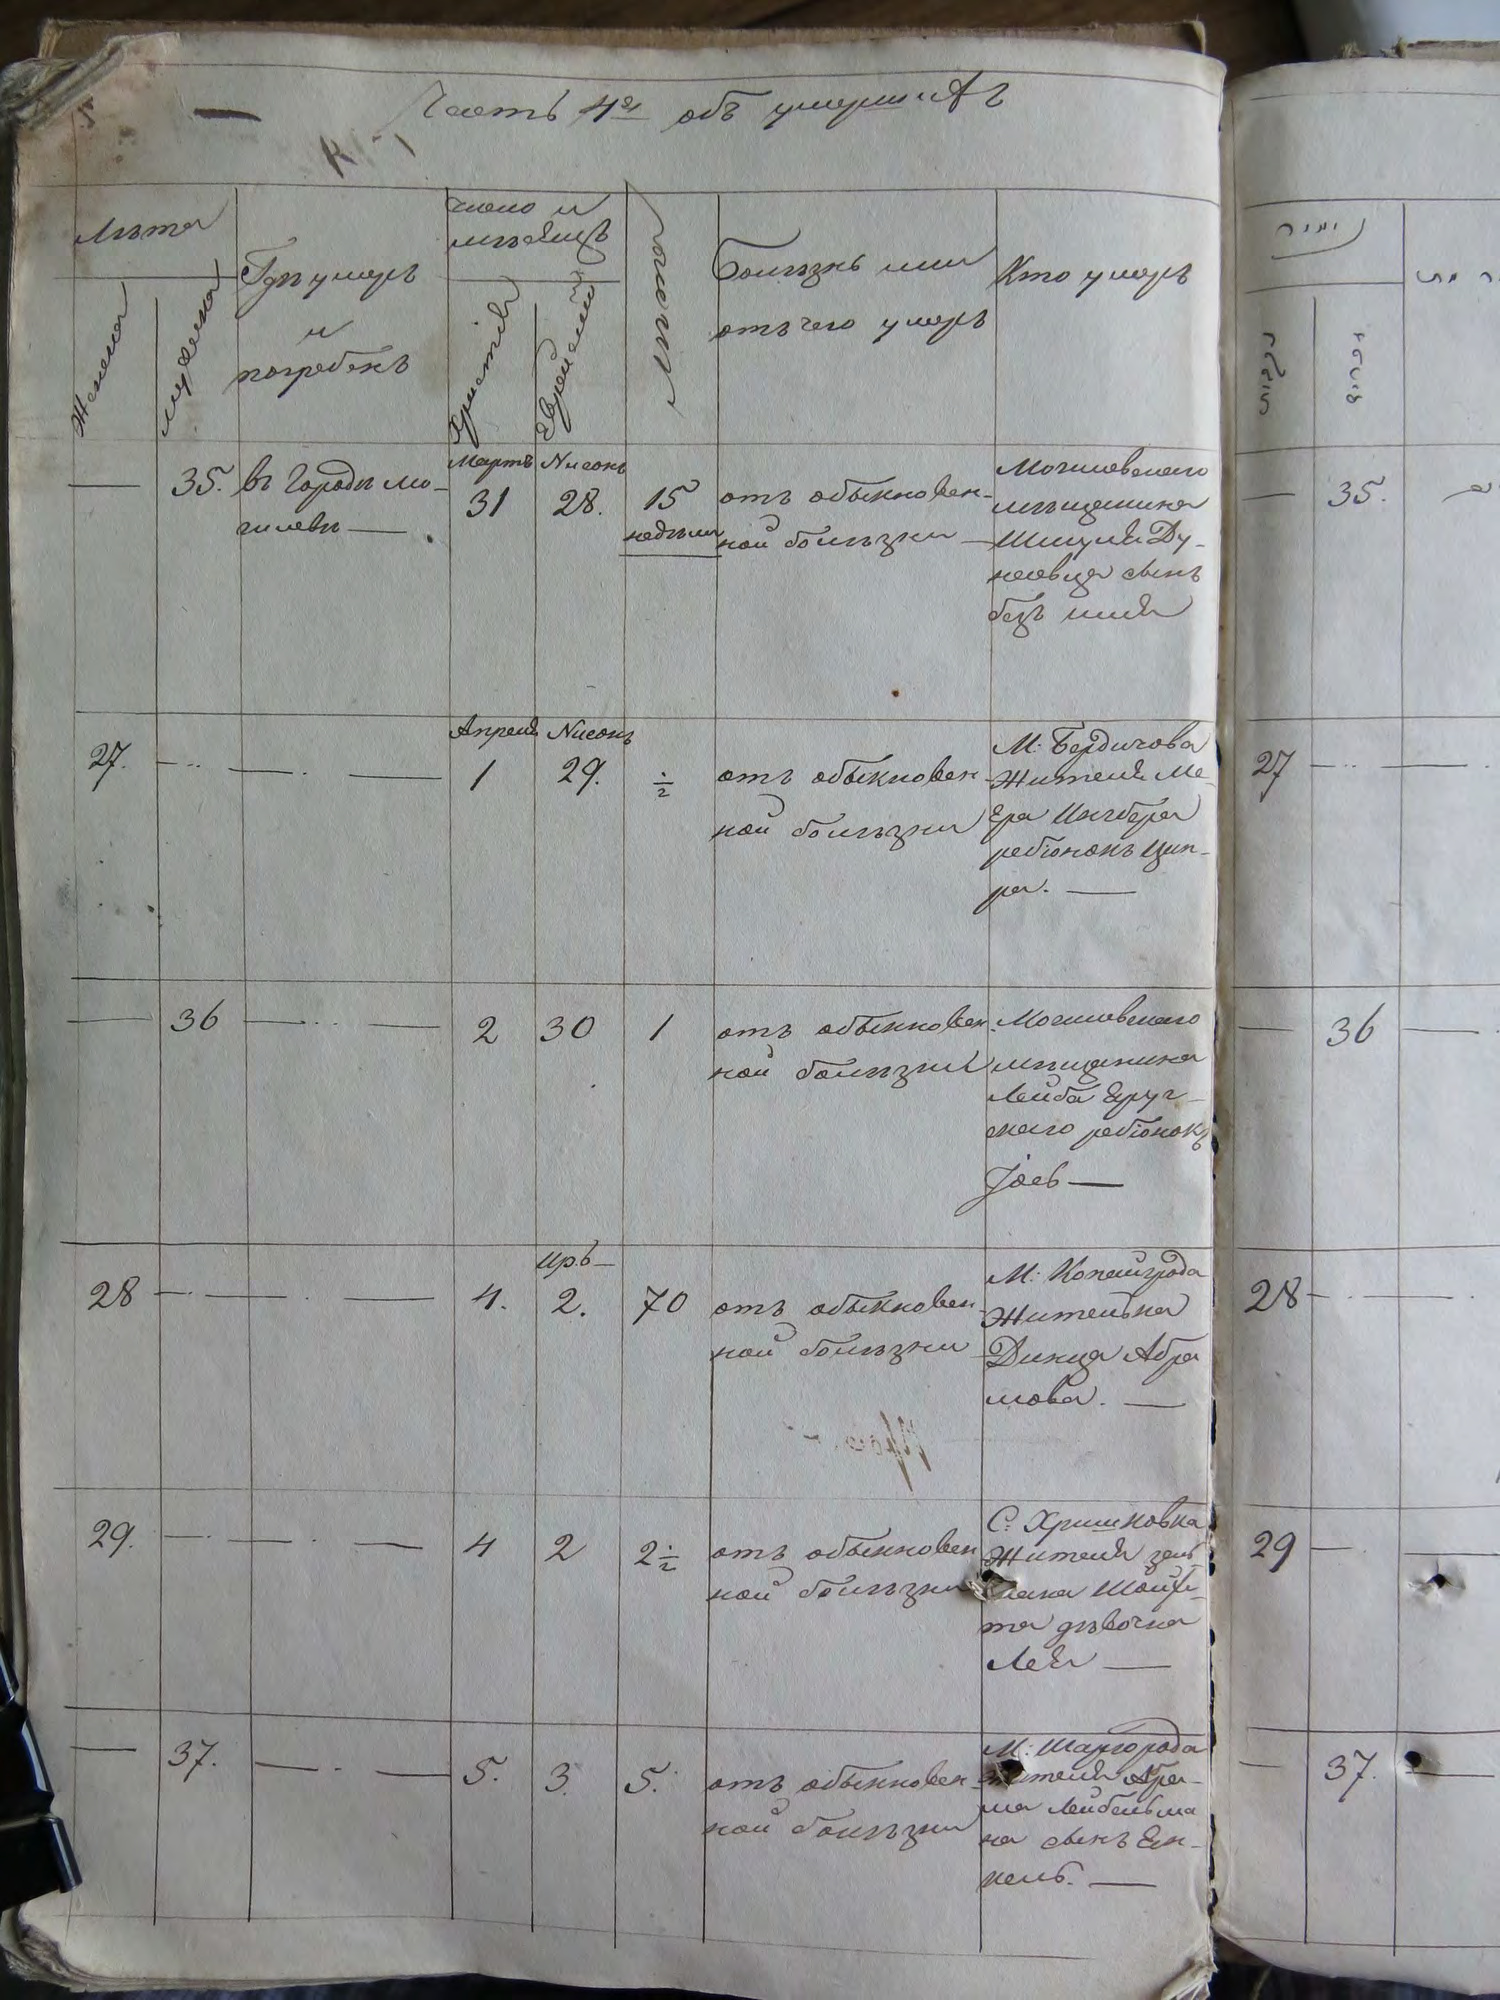 Часть 4я объ умершихъ
Лѣта
Женска
мужеска
Гдѣ умеръ
и
погребенъ
число и
мѣсяцъ
Христіа
Еврейскій
Болѣзнь или
отъ чего умеръ
Кто умеръ
Мартъ Нисонъ
— 35. въ городѣ Мо-
гилевѣ —
31 28. 15
недѣли
отъ обыкновен-
ной болѣзни —
Могилевскаго
мѣщанина
Шмуля Ду-
наевца сынъ
безъ имя
Апреля Нисонъ
27. 1 29. ÷2
отъ обыкновен-
ной болѣзни
М: Бердичова
Жителя Ме-
ера Ингбера
ребіонокъ Цип-
ра. —
— 36 2 30 1
отъ обыкновен-
ной болѣзни
Могилевскаго
мѣщанина
Лейба
скаго ребіонокъ
Іось —
Иръ —
28 4. 2. 70
отъ обыкновен-
ной болѣзни
М: Копайгрода
Жителька
Динця Абра
мова. —
29. 4 2 2 ÷2
отъ обыкновен
ной болѣзни
С: Хришновка
Жителя
та дѣвочка
Лея —
— 37. 5. 3. 5.
отъ обыкновен-
ной болѣзни
М: Шаргорода
жителя Абра-
ма Лейбельма
на сынъ Ян-
кель. —
— 35.
27
— 36
28
29
— 37.